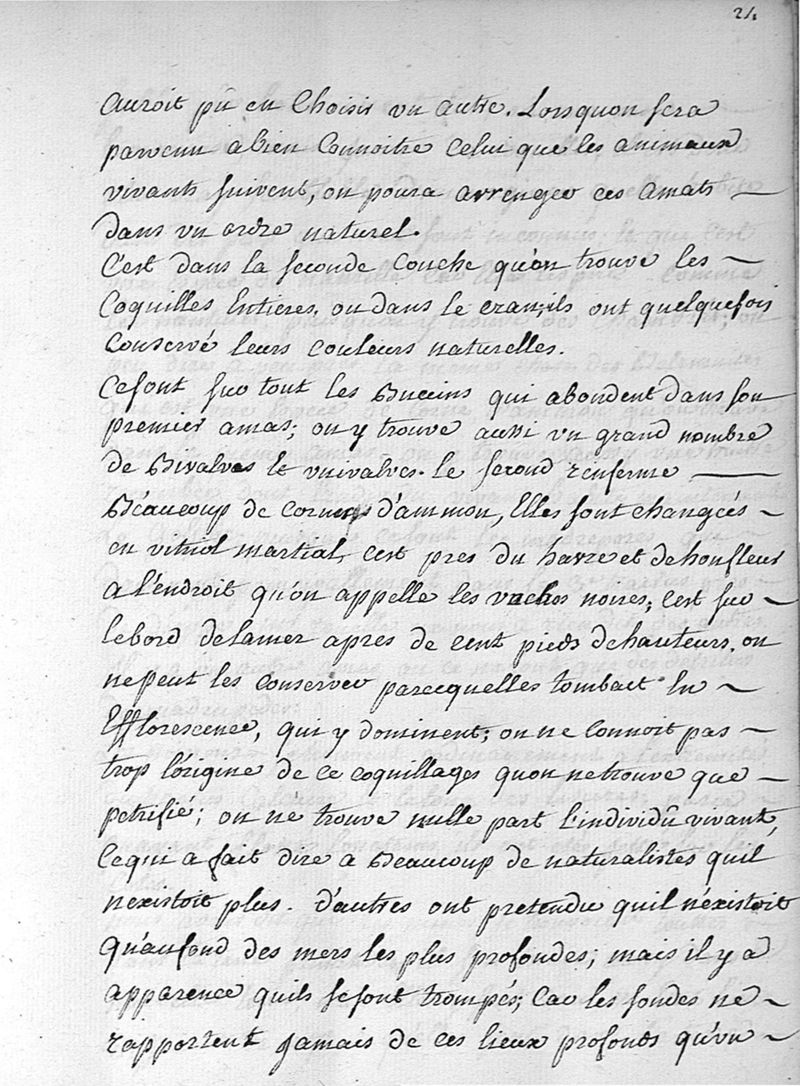 24
auroit pû en Choisir un autre. Lorsquon sera
parvenu a bien Connoitre Celui que les animaux
vivants suivent, on poura arrenger ces amats
dans un ordre naturel.
C'est dans la seconde Couche qu'on trouve les
Coquilles Entieres, ou dans le cran, ils ont quelquefois
Conservé leurs couleurs naturelles.
Ce sont sur tout les Buccins qui abondent dans son
premier amas; on y trouve aussi un grand nombre
de Bivalves le univalves. le second renferme
Beaucoup de Cornes d'ammon, Elles sont changées
en vitriol martial, cest pres du havre et de honfleur
a l'endroit qu'on appelle les vaches noires; cest sur
le bord de lamer apres de cent pieds de hauteurs. on
ne peut les conserver parcequelles tombact En
Efflorescence, qui y dominent; on ne Connoit pas
trop l'origine de ce coquillages quon ne trouve que
petrifié; on ne trouve nulle part l'individû vivant,
Cequi a fait dire a Beaucoup de naturalistes quil
nexistoit plus. D'autres ont pretendu quil néxistoit
Qu'aufond des mers les plus profondes; mais il y a
apparence quils se font trompés; Car les fondes ne
rapportent Jamais de ces lieux profonds qu'un